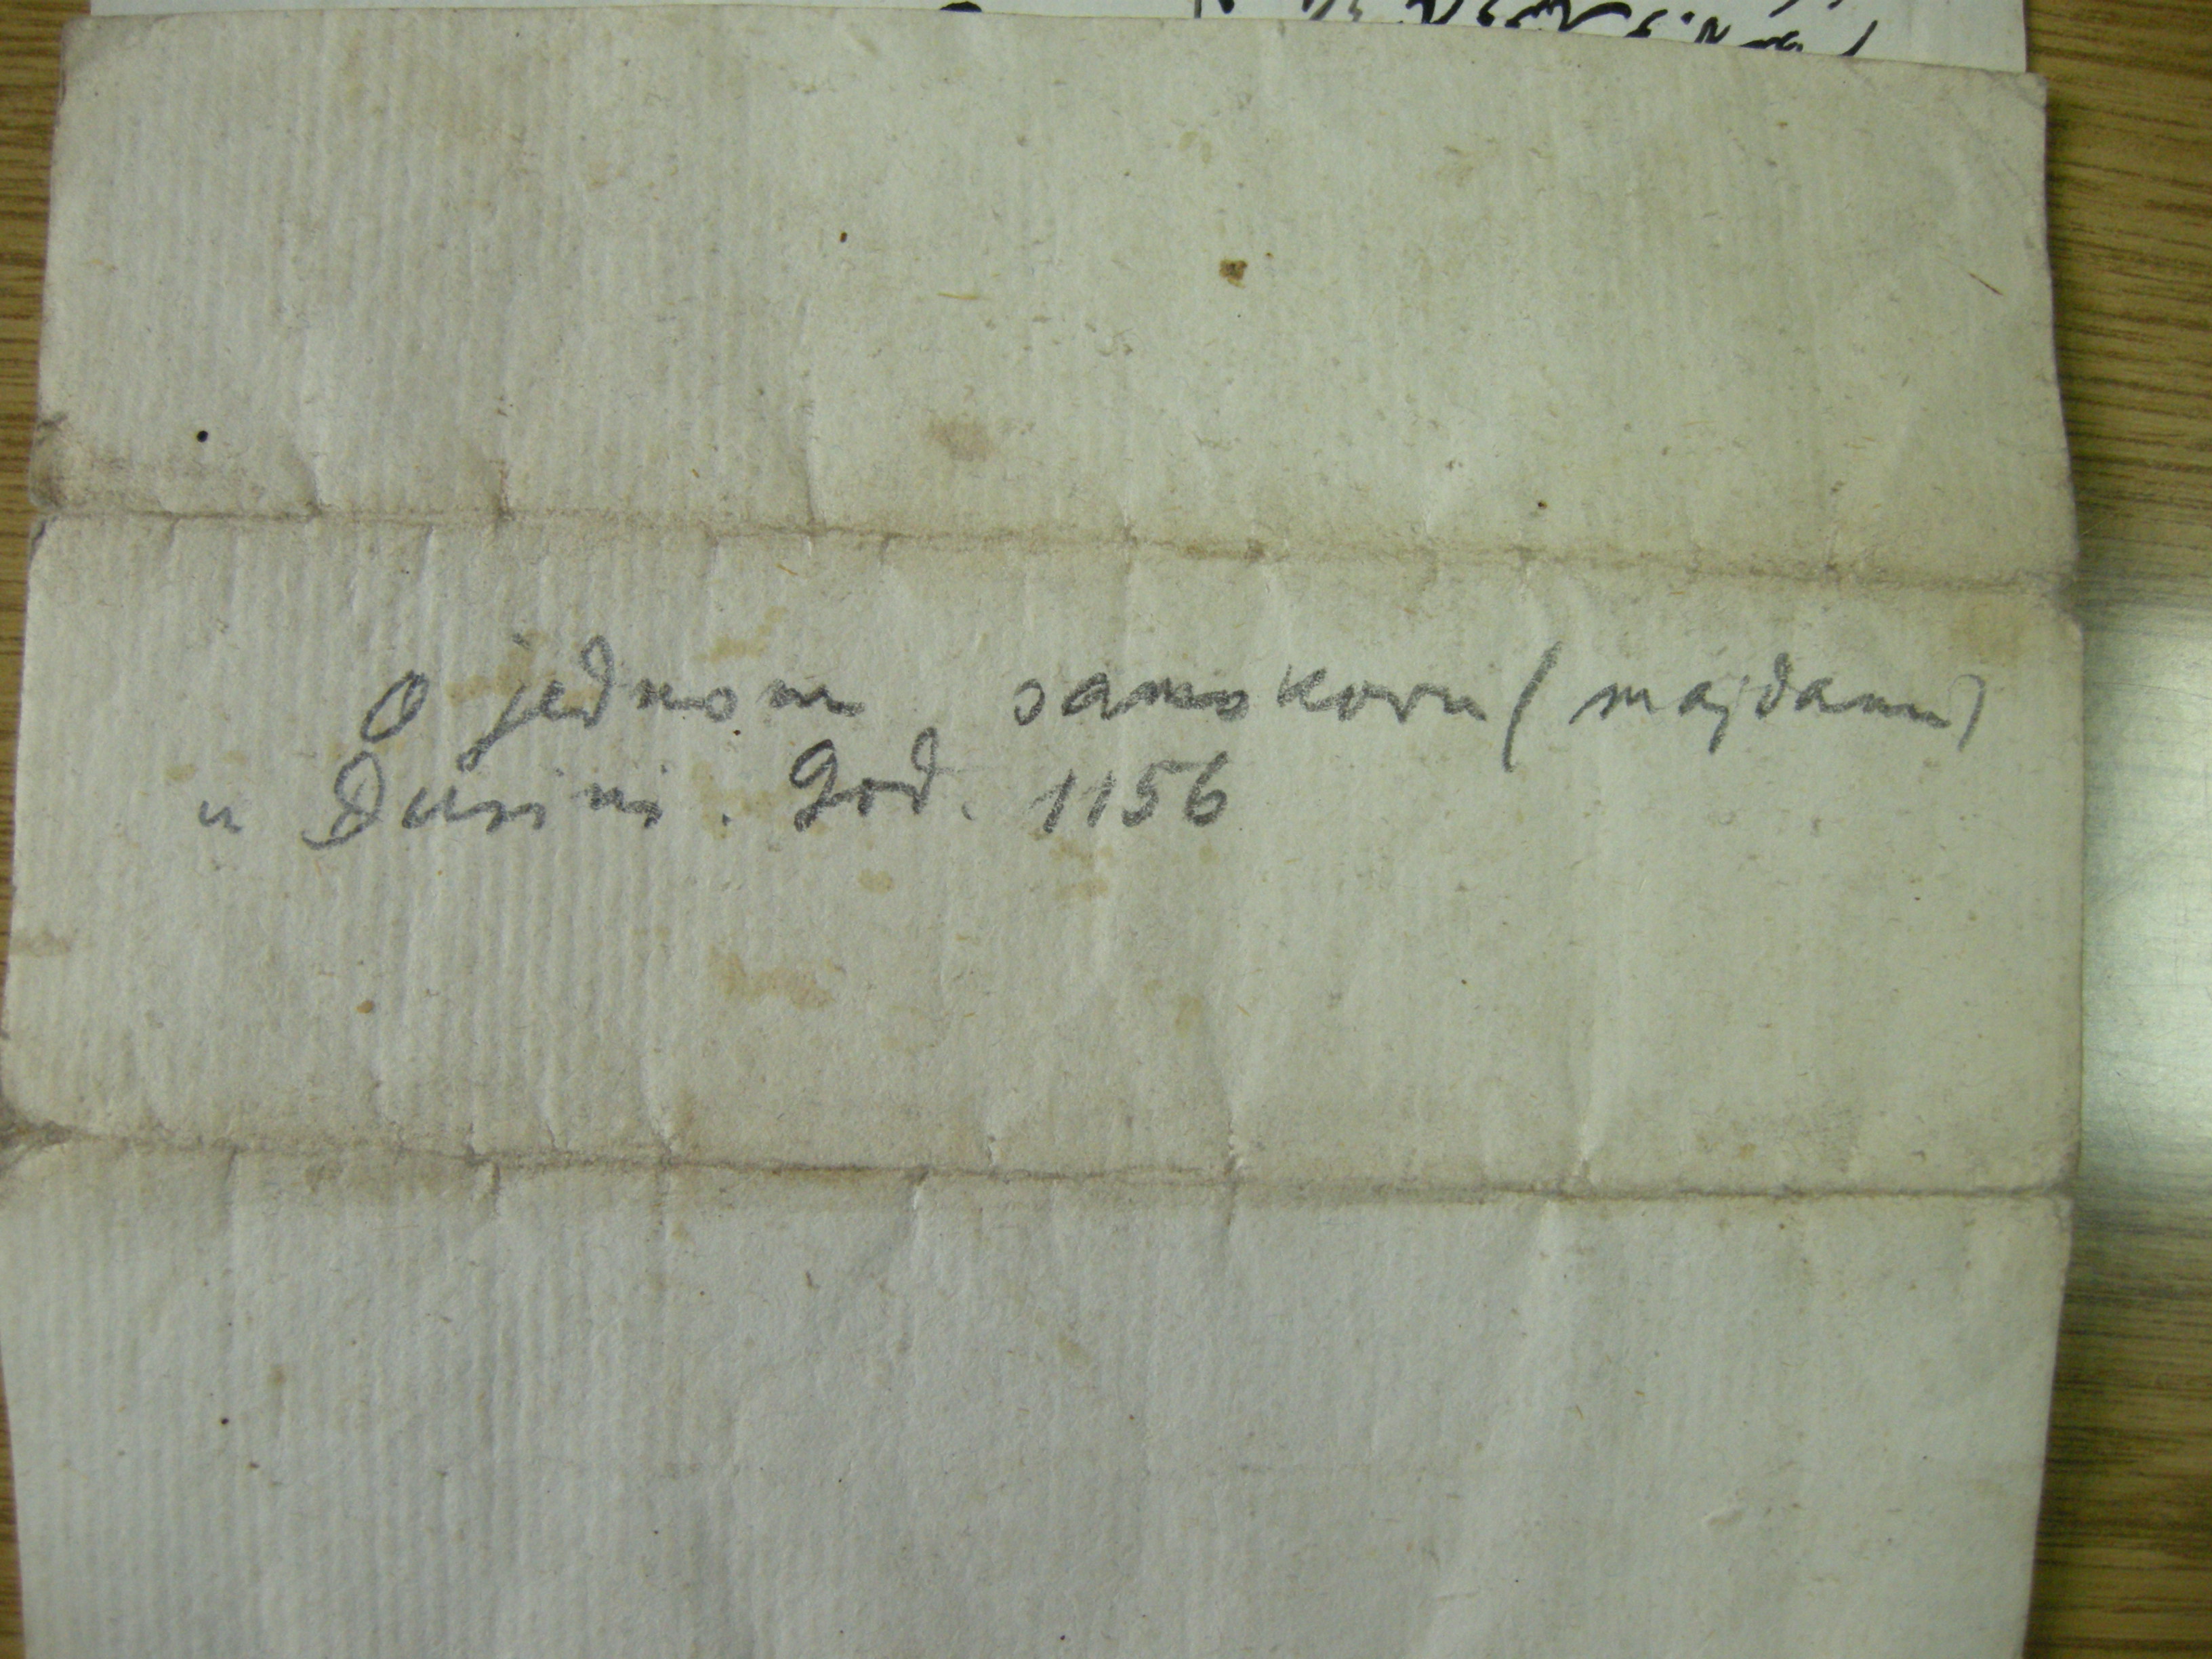 O jednom samokovu (majdanu)
u Dusini. God. 1156